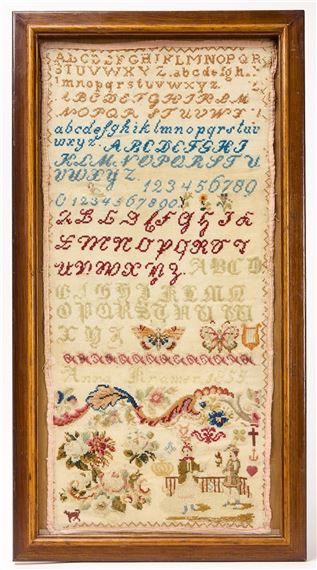 ABCDEFGHIJKLMNOPQR
STUVWXYZ.abcdefgh.
imnopqrstuvwxyz.
ABCDEFGHIKLM
NOPQRSTUVWX
abcdefghiklmnopqrstuv
wxyz.ABCDEFGHI
KLMNOPQRSTU
VWXYZ 1234567890
0 1234567890
ABCDEFGHIK
LMNOPQRST
UVWXYZ ABCD
EFGHIKLMN
OPQRSTUVW
XYZ
Anna